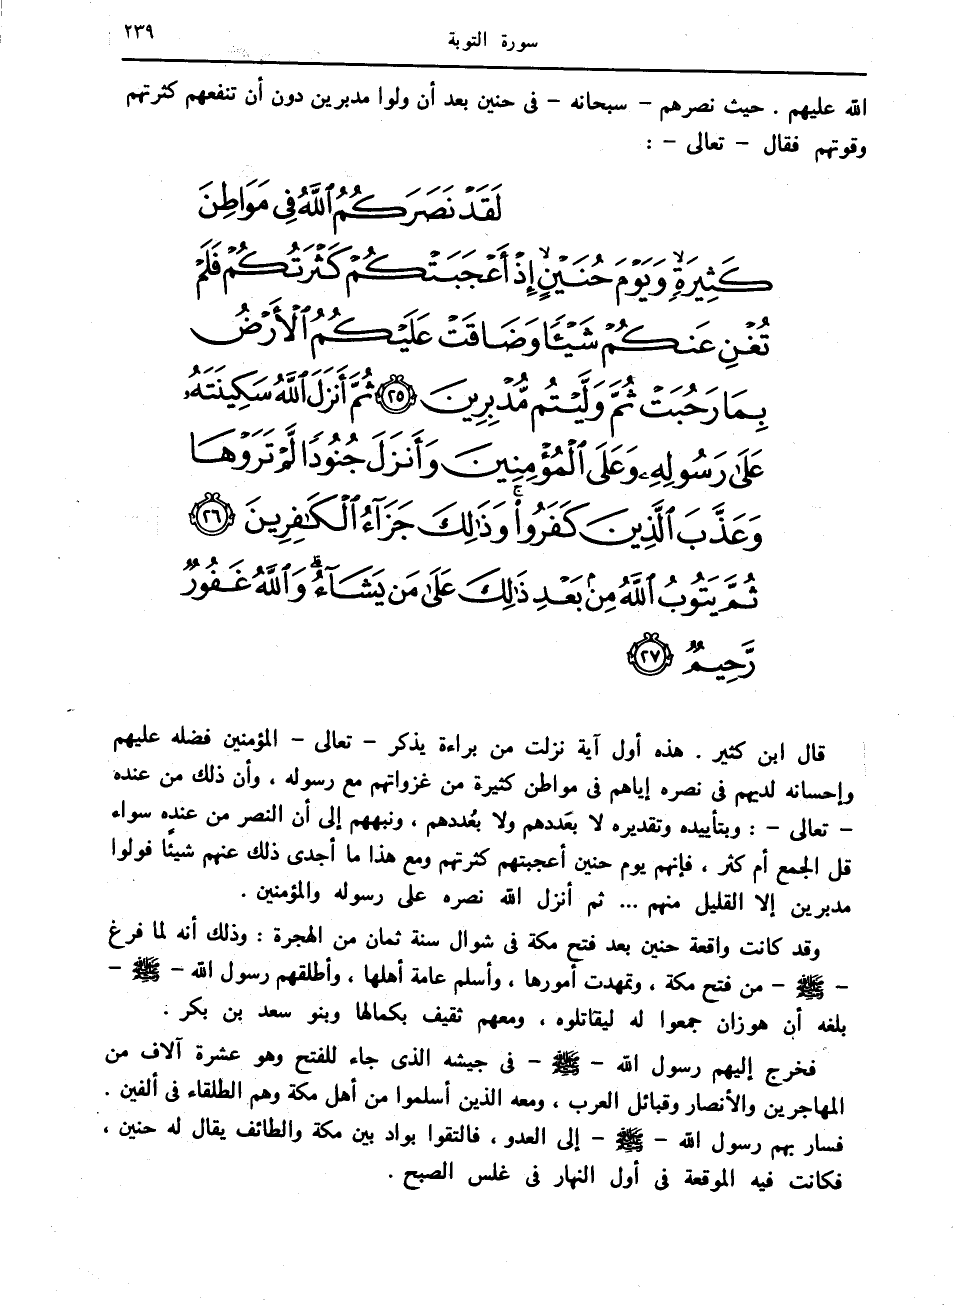 سورة التوبة ٢٣٩
الله عليهم . حيث نصرهم – سبحانه – فى حنين بعد أن ولوا مدبرين دون أن تنفعهم كثرتهم
وقوتهم فقال – تعالى – :
لَقَدْ نَصَرَكُمُ ٱللَّهُ فِى مَوَاطِنَ
كَثِيرَةٍۙ وَيَوْمَ حُنَيْنٍۙ إِذْ أَعْجَبَتْكُمْ كَثْرَتُكُمْ فَلَمْ
تُغْنِ عَنكُمْ شَيْـًٔا وَضَاقَتْ عَلَيْكُمُ ٱلْأَرْضُ
بِمَا رَحُبَتْ ثُمَّ وَلَّيْتُم مُّدْبِرِينَ ٢٥ ثُمَّ أَنزَلَ ٱللَّهُ سَكِينَتَهُۥ
عَلَىٰ رَسُولِهِۦ وَعَلَى ٱلْمُؤْمِنِينَ وَأَنزَلَ جُنُودًا لَّمْ تَرَوْهَا
وَعَذَّبَ ٱلَّذِينَ كَفَرُوا۟ۚ وَذَٰلِكَ جَزَآءُ ٱلْكَٰفِرِينَ ٢٦
ثُمَّ يَتُوبُ ٱللَّهُ مِنۢ بَعْدِ ذَٰلِكَ عَلَىٰ مَن يَشَآءُۗ وَٱللَّهُ غَفُورٌ
رَّحِيمٌ ٢٧
قال ابن كثير . هذه أول آية نزلت من براءة يذكر – تعالى – المؤمنين فضله عليهم
وإحسانه لديهم فى نصره إياهم فى مواطن كثيرة من غزواتهم مع رسوله ، وأن ذلك من عنده
– تعالى – : وبتأييده وتقديره لا بعَددهم ولا بعُددهم ، ونبههم إلى أن النصر من عنده سواء
قل الجمع أم كثر ، فإنهم يوم حنين أعجبتهم كثرتهم ومع هذا ما أجدى ذلك عنهم شيئًا فولوا
مدبرين إلا القليل منهم ... ثم أنزل الله نصره على رسوله والمؤمنين .
وقد كانت واقعة حنين بعد فتح مكة فى شوال سنة ثمان من الهجرة : وذلك أنه لما فرغ
– ﷺ – من فتح مكة ، وتمهدت أمورها ، وأسلم عامة أهلها ، وأطلقهم رسول الله – ﷺ –
بلغه أن هوزان جمعوا له ليقاتلوه ، ومعهم ثقيف بكمالها وبنو سعد بن بكر .
فخرج إليهم رسول الله – ﷺ – فى جيشه الذى جاء للفتح وهو عشرة آلاف من
المهاجرين والأنصار وقبائل العرب ، ومعه الذين أسلموا من أهل مكة وهم الطلقاء فى ألفين .
فسار بهم رسول الله – ﷺ – إلى العدو ، فالتقوا بواد بين مكة والطائف يقال له حنين ،
فكانت فيه الموقعة فى أول النهار فى غلس الصبح .